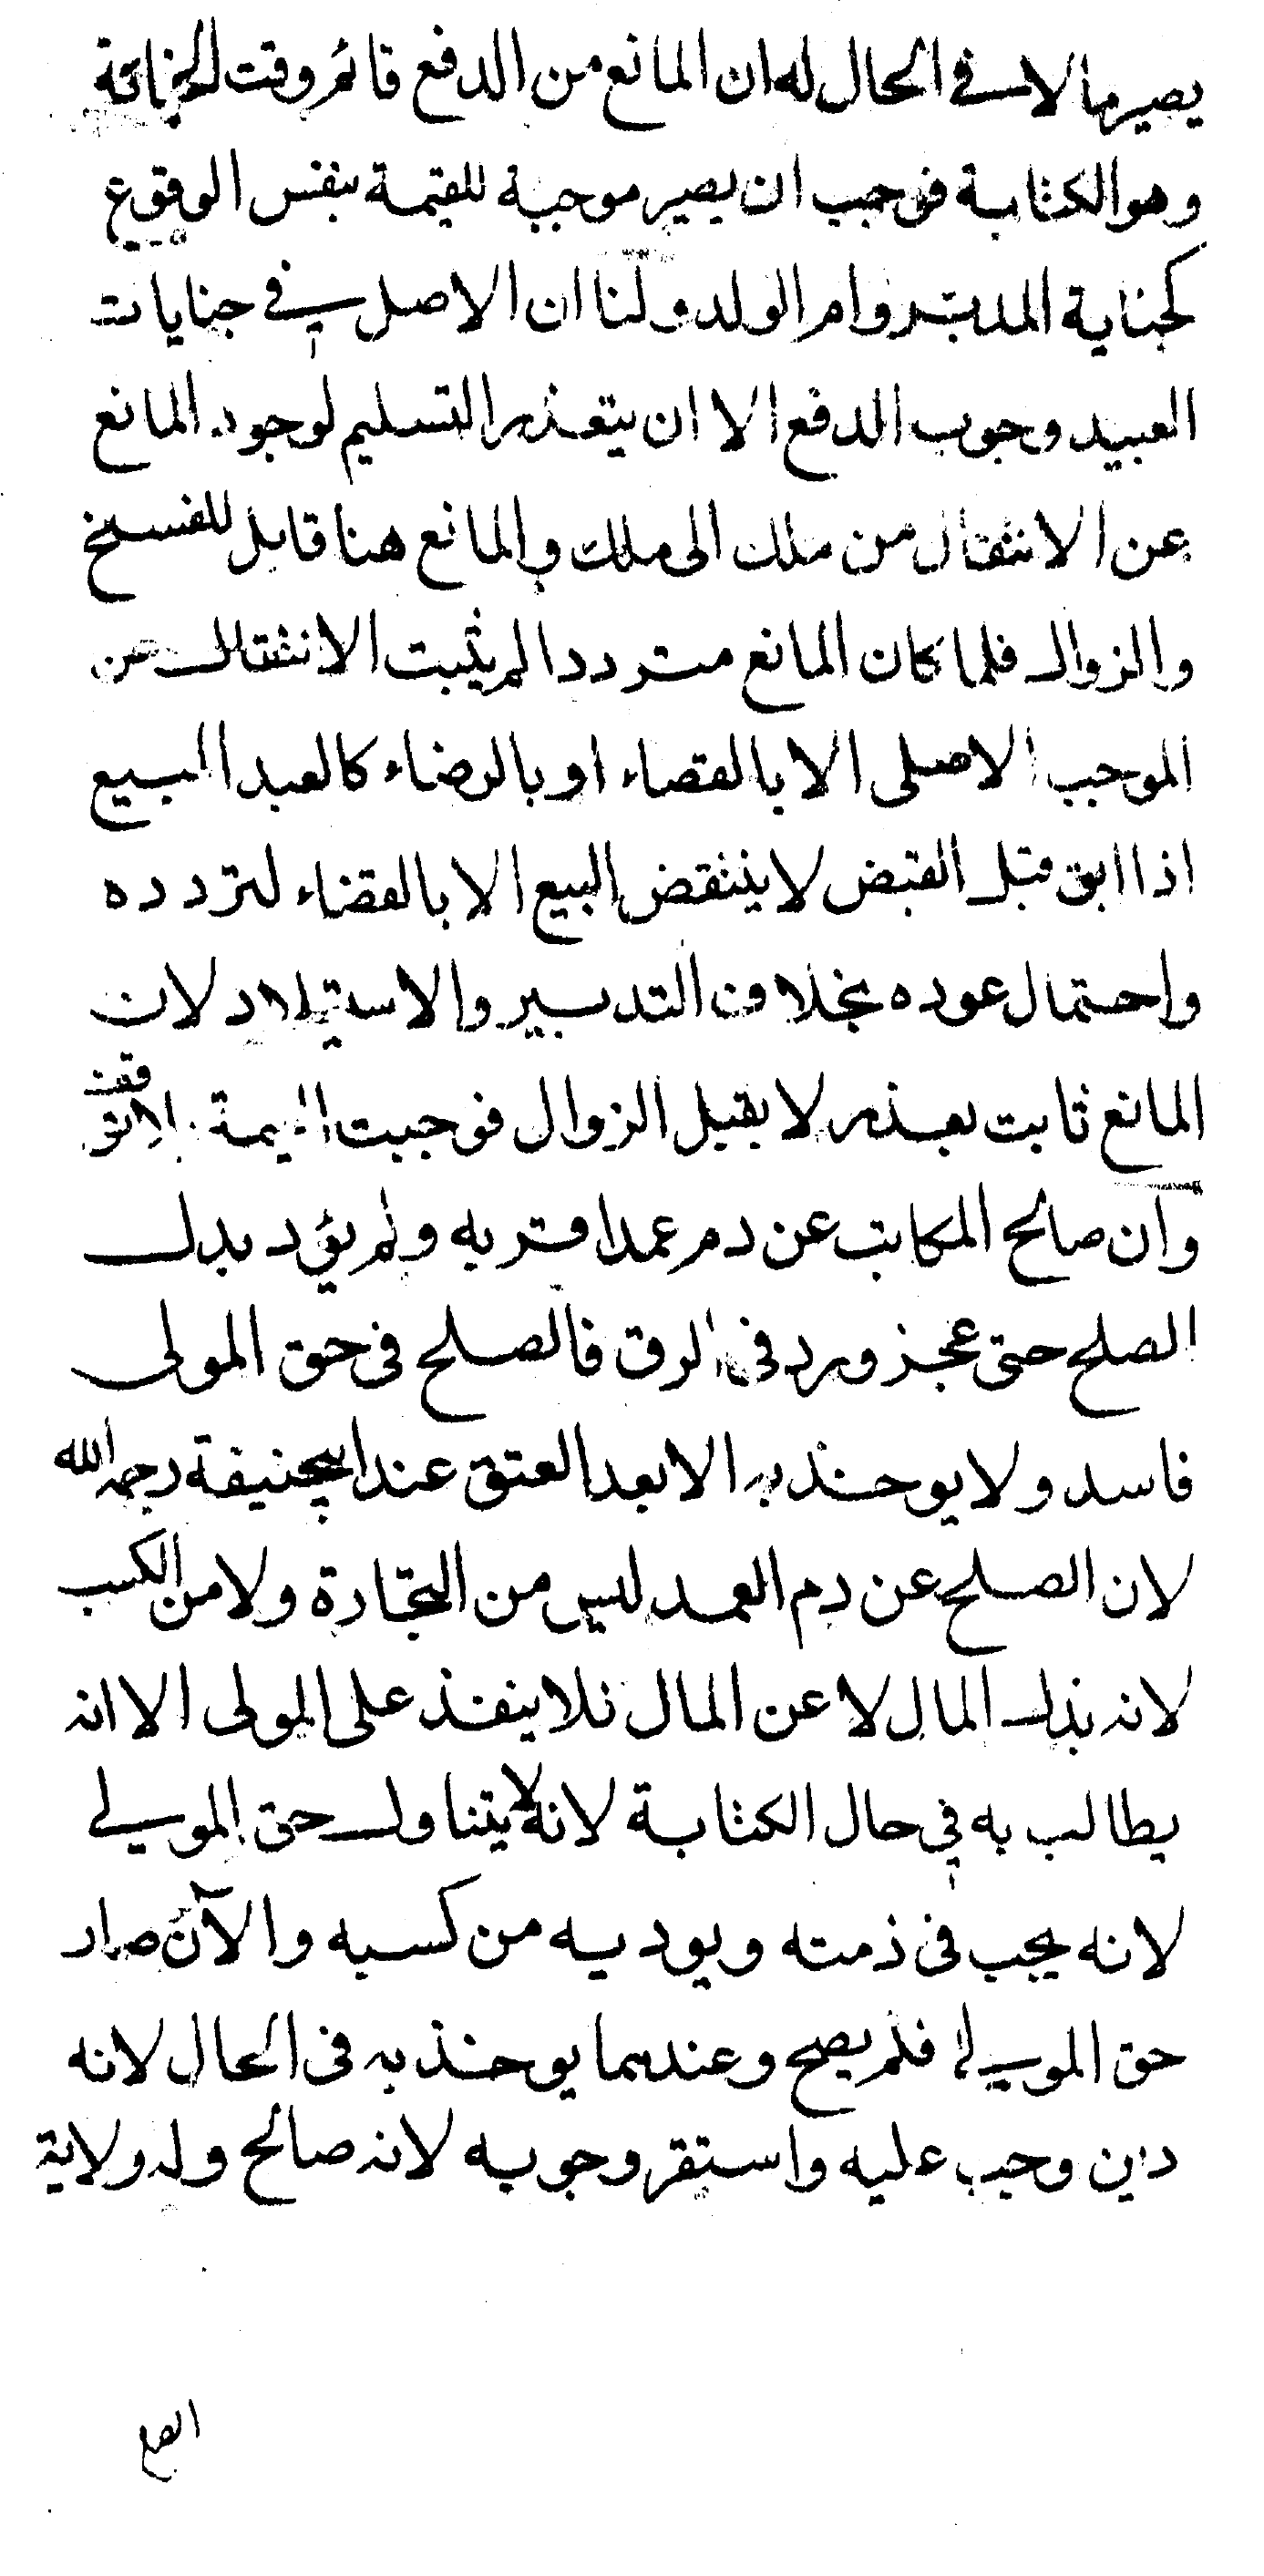 يصير مالا في الحال له ان المانع من الدفع قائم وقت الجناية
وهو الكتابة فوجب ان يصير موجبة للقيمة بنفس الوقوع
كجناية المدبر وام الولد ولنا ان الاصل في جنايات
العبيد وجوب الدفع الا ان يتعذر التسليم لوجود المانع
عن الانتقال من ملك الى ملك والمانع هنا قابل للفسخ
والزوال فلما كان المانع مترددا لم يثبت الانتقال عن
الموجب الاصلى الا بالقضاء او بالرضاء كالعبد المبيع
اذا ابق قبل القبض لا ينتقض البيع الا بالقضاء لتردده
واحتمال عوده بخلاف التدبير والاستيلاد لان
المانع ثابت بعذر لا يقبل الزوال فوجبت القيمة بلا توقف
وان صالح المكاتب عن دم عمد اقر به ولم يؤد بدل
الصلح حتى عجز ورد في الرق فالصلح في حق المولى
فاسد ولا يوخذ به الا بعد العتق عند ابيحنيفة رحمه الله
لان الصلح عن دم العمد ليس من التجارة ولا من الكسب
لانه بذل المال لا عن المال فلا ينفذ على المولى الا انه
يطالب به في حال الكتابة لانه لا يتناول حق المولى
لانه يجب في ذمته ويوديه من كسبه والآن صار
حق المولى فلم يصح وعندهما يوخذ به في الحال لانه
دين وجب عليه واستقر وجوبه لانه صالح وله ولاية
الصلح